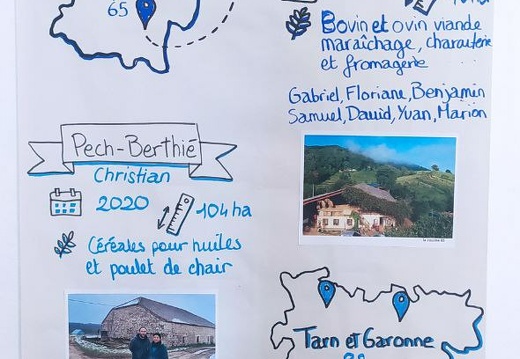 65
Bovin et ovin viande
maraîchage, charcuterie
et fromagerie
Gabriel, Floriane, Benjamin
Samuel, David, Yvan, Marion
Pech-Berthié
Christian
2020
104 ha
Céréales pour huiles
et poulet de chair
Tarn et Garonne